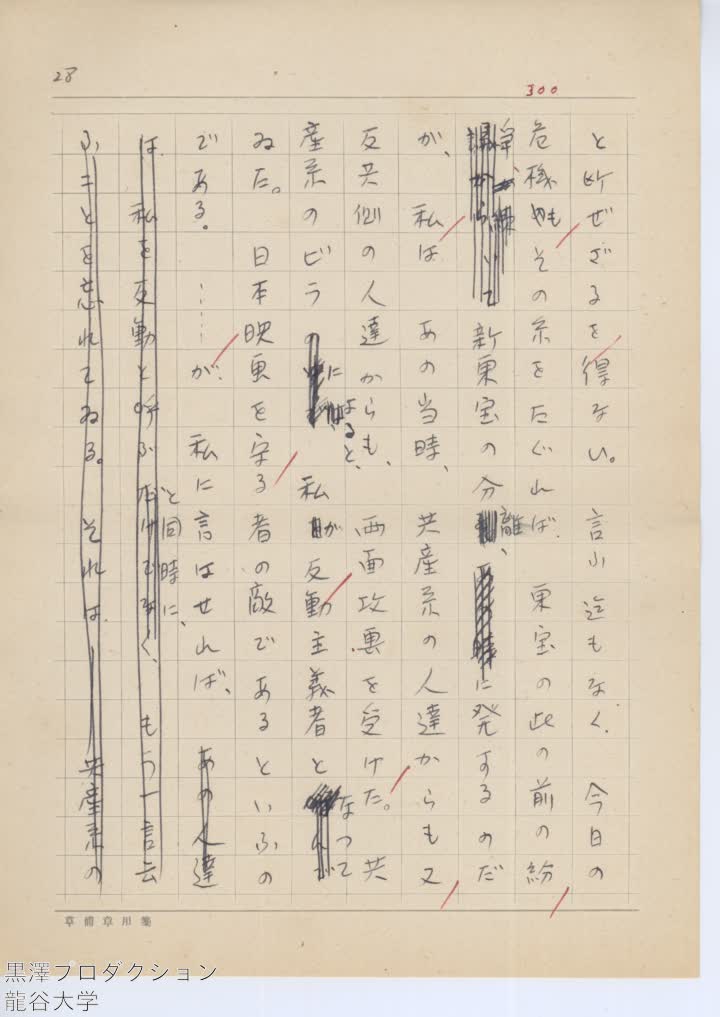 28
300
と断ぜざるを得ない。言ふ迄もなく、今日の
危機もその糸をたぐれば、東宝の此の前の紛
争、新東宝の分離、に発するのだ
が、私は、あの当時、共産系の人達からも又
反共側の人達からも、両面攻撃を受けた。共
産系のビラによると、私が反動主義者となつて
ゐた。日本映画を守る者の敵であるといふの
である。……が、私に言はせれば、あの人達
は、私を反動と呼ぶと同時に、もう一言云
ふことを忘れてゐる。それは、共産系の
草稿用箋
黒澤プロダクション
龍谷大学